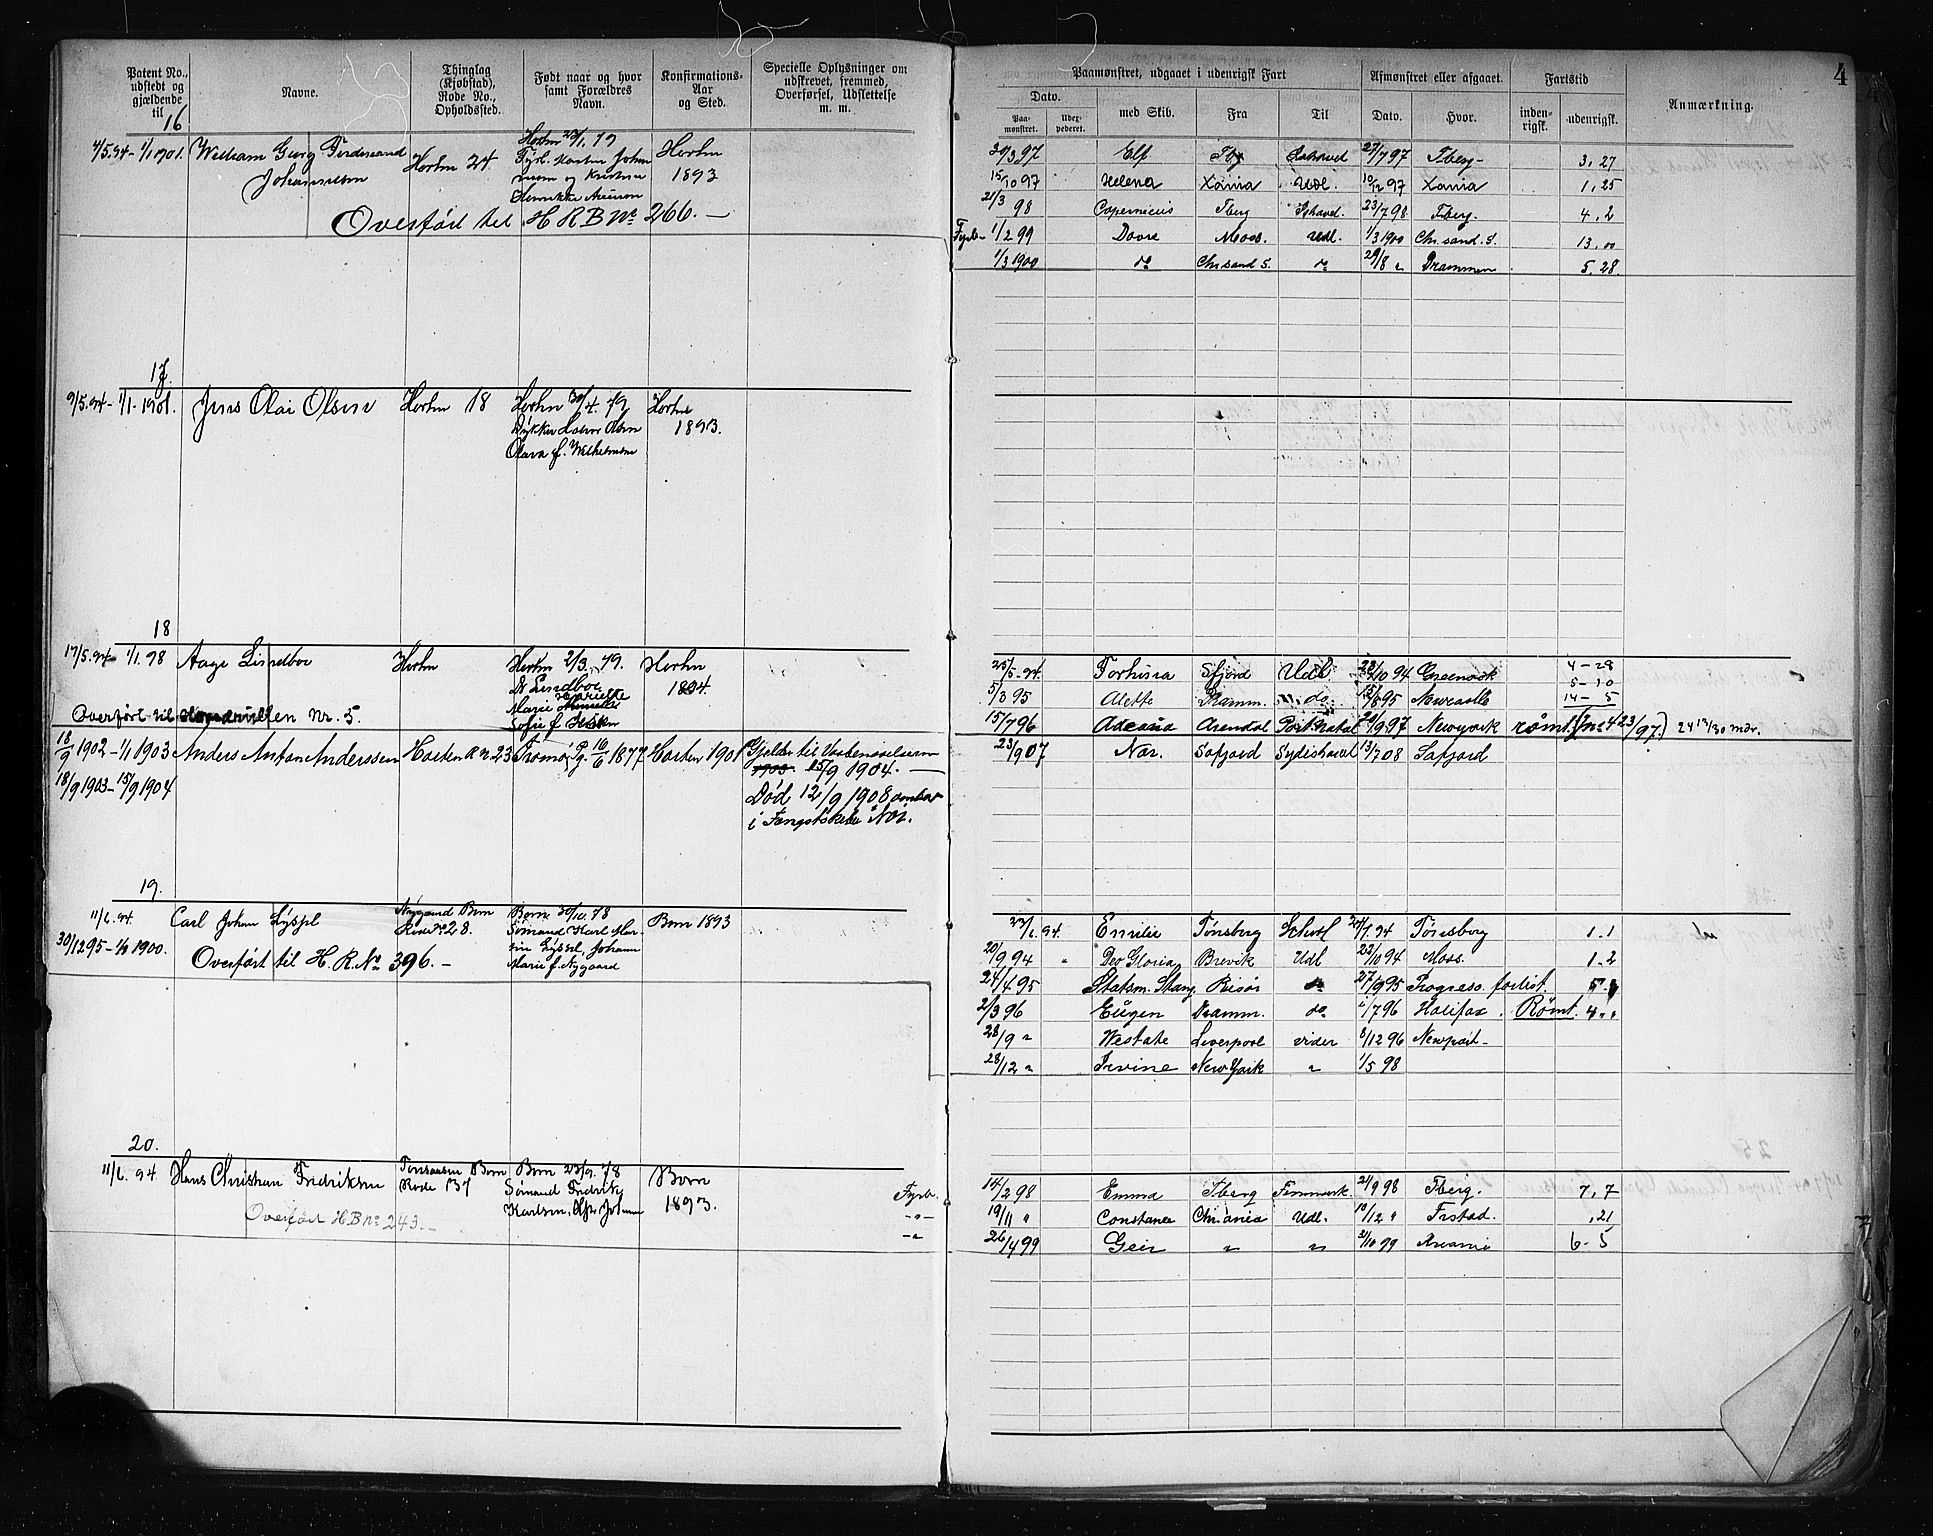 Patent No., udstedt og gjældende til
Navne.
Thinglag (Kjøbstad), Rode No., Opholdssted.
Født naar og hvor samt Forældres Navn.
Konfirmations-Aar og Sted.
Specielle Oplysninger om udskrevet, fremmed, Overførsel, Udslettelse m. m.
Paamønstret, udgaaet i udenrigsk Fart
Dato.
Paamønstret.
Udexpederet.
med Skib.
Fra
Til
Afmønstret eller afgaaet.
Dato.
Hvor.
Fartstid
indenrigsk.
udenrigsk.
Anmærkning.
4
16
4/5.94 - 1/1 1901.
William Georg Ferdinand
Johannesen
Horten 24
Horten 23/1. 79
Horten
1893
Overført til H R B No 266. —
20/3 97 Elf Tbg Ishavet 27/7 97 Tberg - 3, 27
15/10 97 Helena Xania Udl. 10/12 97 Xania 1, 25
21/3 98 Copernicus Tberg Ishavet. 23/7 98 Tberg. 4, 2
Fyrb- 1/2 99 Dovre Moss. Udl. 1/3 1900 Chr. sand. S. 13, 00
1/3 1900 do Chr. sand S. do 29/8 " Drammen 5. 28
17.
9/5.94 - 1/1. 1901.
Jens Olai Olsen
Horten 18
Horten 30/4. 79
Dykker Halvor Olsen
Olava f. Wilhelmsen
Horten
1893.
18
17/5.94 - 1/1. 98
Aage Lindboe
Horten
Horten 2/3. 79.
Dr Lindboe
Marie Henriette
Sofie f.
Horten
1894.
Overført til Hovedrullen Nr. 5.
25/5. 94. Sfjord Udl. 22/10 94 Greenock 4 - 28
5/3 95 Alette Dramm. " do 15/8 95 Newcastle 5 - 10
14 - 5
15/7 96 Arendal Port Natal 21/9 97 Newyork rømt.
18/9 1902 - 1/1 1903
Anders Anton Anderssen
Horten R n 23
Tromø Pg. 10/6 1877
Horten 1901
Gjelder til
1903. 15/9 1904. —
18/9 1903 - 15/9 1904
Død 12/9 1908 ombor
i Fangstskibe Nor.
23/9 07 Nor. Safjord Sydishavet 13/7 08 Safjord
19.
11/6. 94.
30/12 95 - 1/1 1900.
Carl Johan Lyspl
Nygaard Borre
Rode No 28.
Borre 30/10. 78
Sømand Karl Mar-
Johanne
Marie f. Nygaard
Borre 1893
Overført til H. R. No 396. —
23/6. 94. Emilie Tønsberg Schval 24/7. 94 Tønsberg 1. 1
20/9 94 " Deo Gloria Brevik Udl 22/10 94 Moss. 1. 2
24/4 95 Statsm. Stang Risør do 27/9 95 Progreso forlist. 5
2/3 96 Eugen Dramm. do 1/7 96 Halifax. Rømt. 4 " "
28/9 " Westate Liverpool vider 8/12 96 Newport -
28/12 " Irvine New York " 1/5 98
20.
11/6. 94
Hans Christian Fredriksen
Borre
Rode 137
Borre 23/9. 78
Sømand Fredrik
Karlsen,
Borre
1893.
Overført H B No 243. —
Fyrb. 14/2 98 Emma Tberg Finmark. 21/9 98 Tberg. 7, 7
— " — 19/11 " Constance Chrania Udl. 10/12 " Frstad. , 21
— " 26/4 99 Geir " " 31/10 99 6 - 5